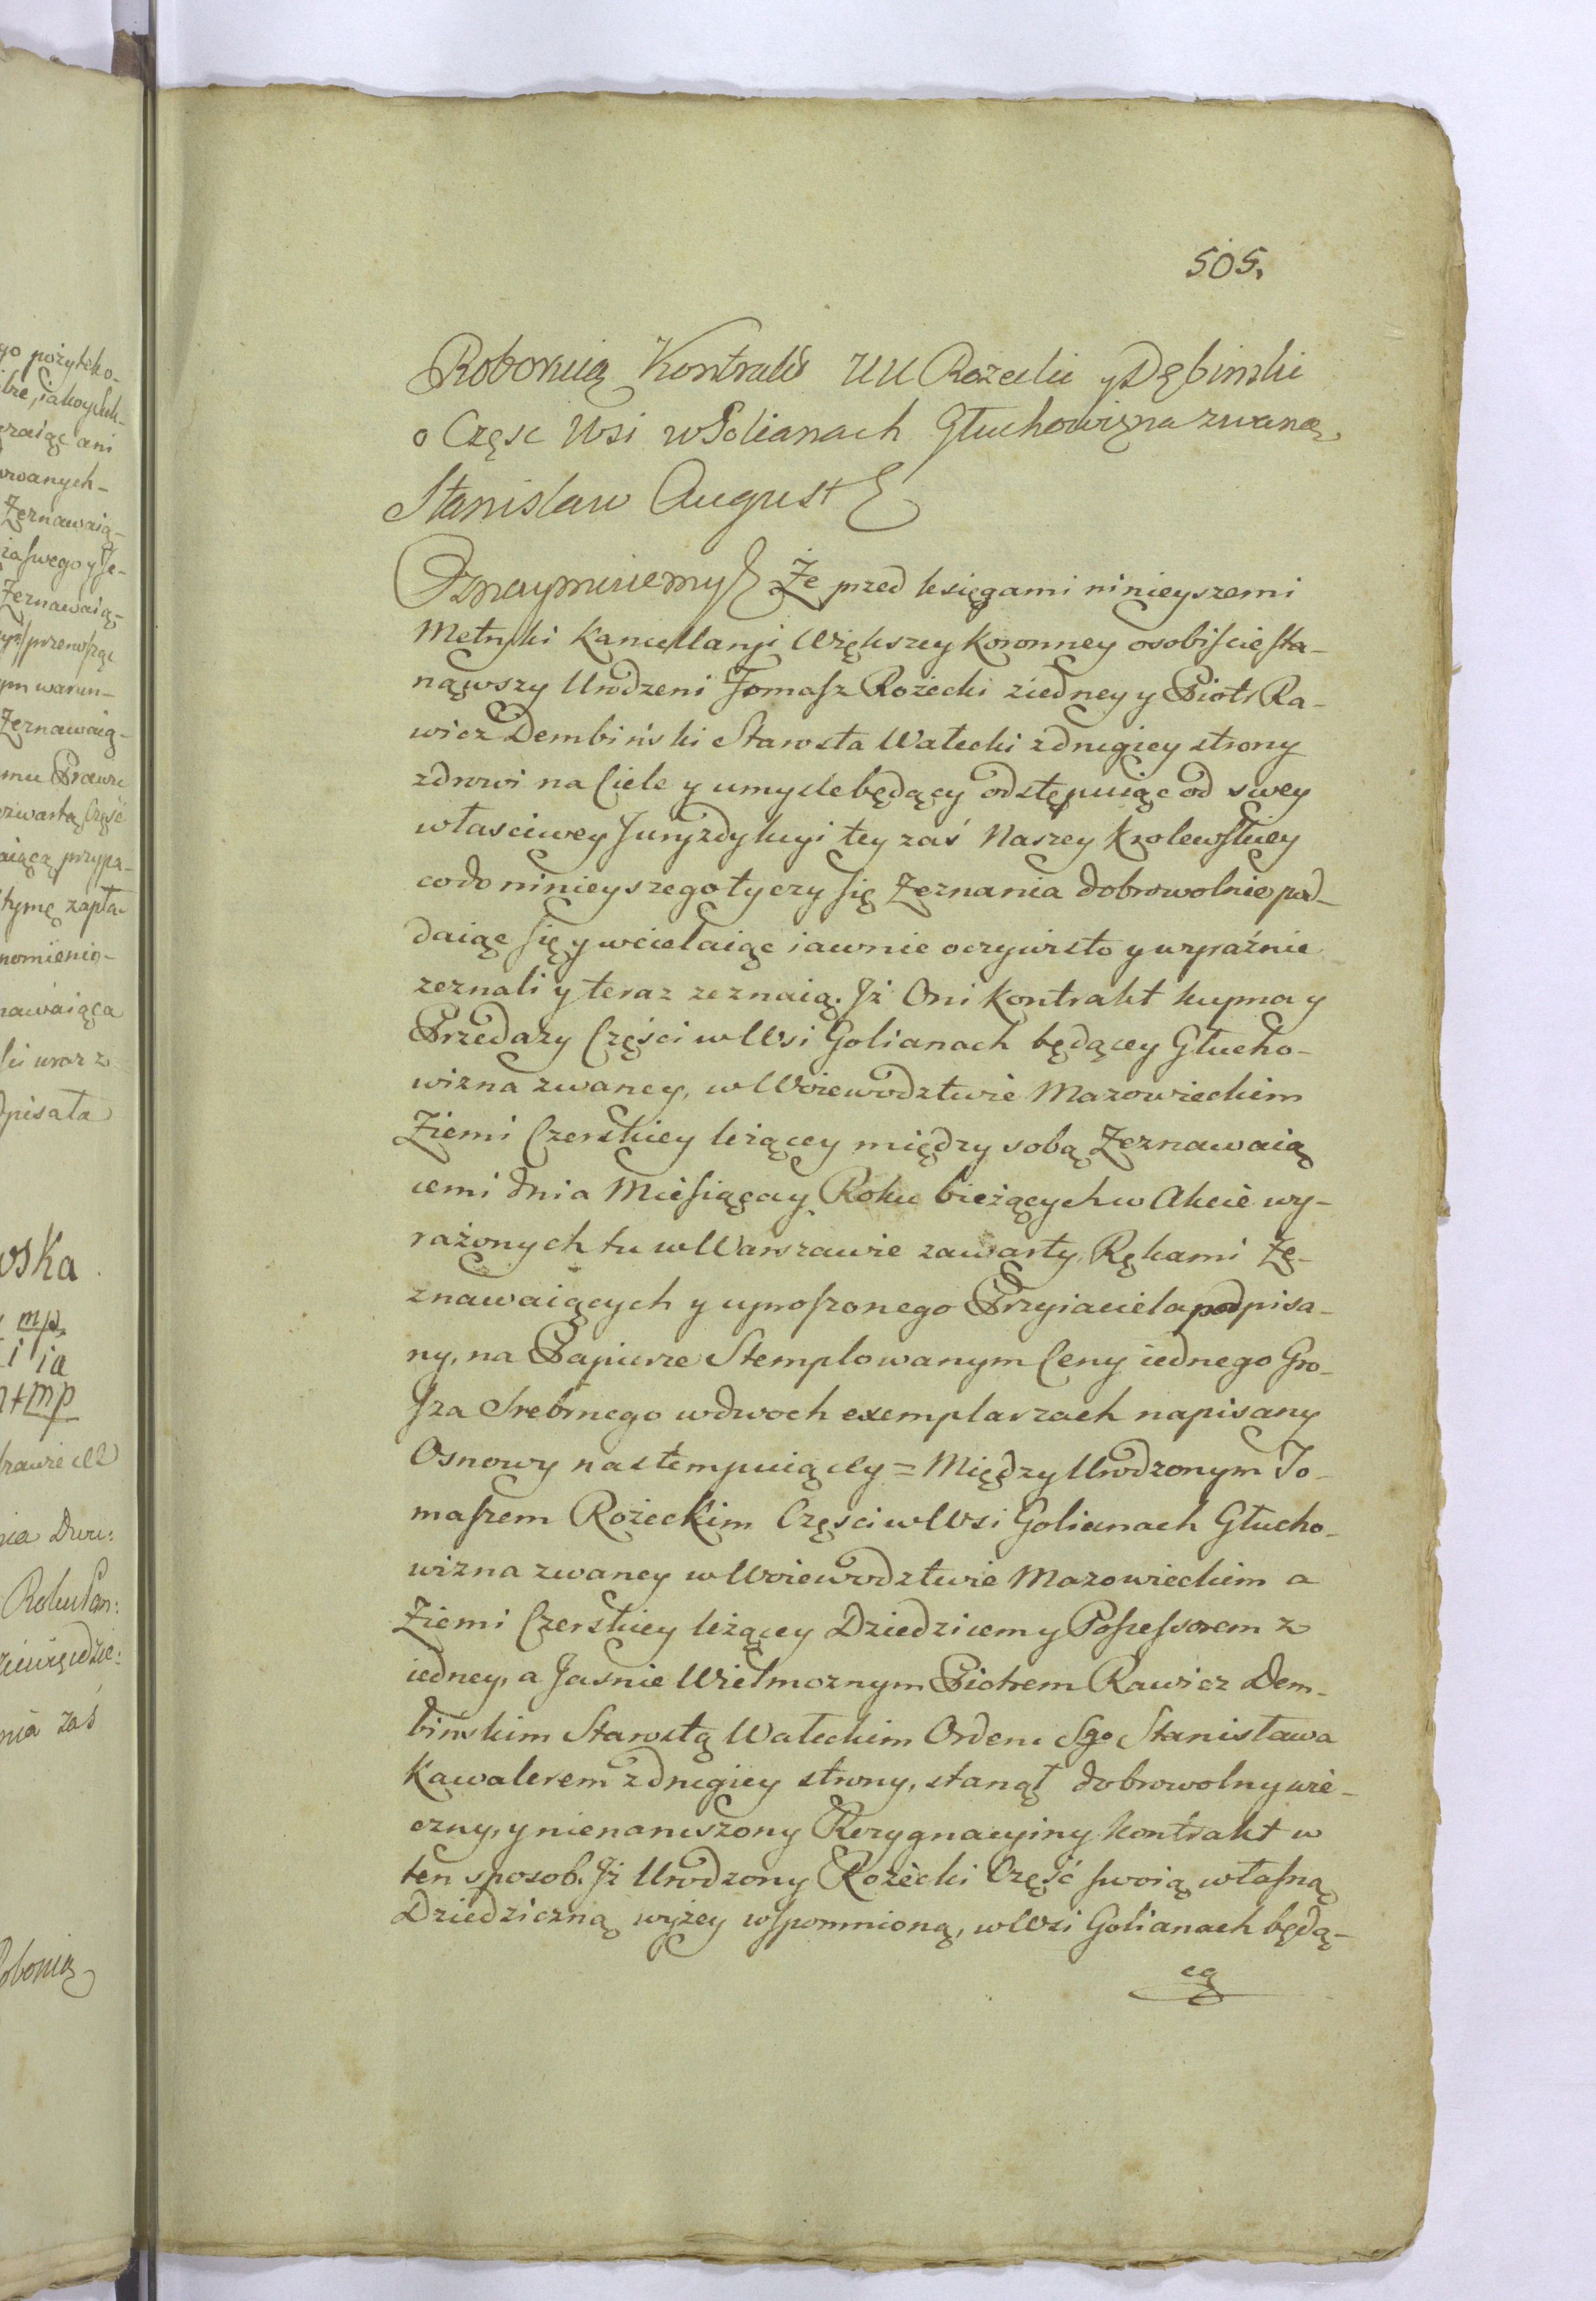 505.
Roboruią Kontrakt UU Rożecki y Dębinski
o Częsc Wsi w Golianach Głuchowizna zwaną
Stanislaw August
Oznaymuiemy Że przed księgami ninieyszemi
Metryki Kancellaryi Większey Koronney osobiście sta-
nąwszy Urodzeni Tomasz Rożecki ziedney y Piotr Ra-
wicz Dembiński Starosta Wałecki zdrugiey strony
zdrowi na Ciele y umysle będący odstępuiąc od swey
własciwey Juryzdykcyi tey zaś Naszey Krolewskiey
codo ninieyszego tyczy się Zeznania dobrowolnie pod-
daiąc się y wcielaiąc iawnie oczywisto y wyraźnie
zeznali y teraz zeznaią. Jż Oni Kontrakt kupna y
Przedazy Części w Wsi Golianach będącey Głucho-
wizna zwaney, w Woiewodztwie Mazowieckim
Ziemi Czerskiey leżącey między sobą Zeznawaią
cemi dnia Miesiąca y Roku bieżących w Akcie wy-
rażonych tu w Warszawie zawarty, Rękami Ze-
znawaiących y uproszonego Przyiaciela podpisa-
ny, na Papierze Stemplowanym Ceny iednego Gro-
sza Srebrnego wdwoch exemplarzach napisany
Osnowy nastempuiącey = Między Urodzonym To-
maszem Rożeckim Częsci w Wsi Golianach Głucho-
wizna zwaney w Woiewodztwie Mazowieckim a
Ziemi Czerskiey leżącey Dziedzicem y Possessorem z
iedney, a Jasnie Wielmoznym Piotrem Rawicz Dem-
binskim Starostą Wałeckim Orderu Sgo Stanisława
Kawalerem zdrugiey strony, stanął dobrowolny wie-
czny, y nienaruszony Rezygnacyiny Kontrakt w
ten sposob. Jż Urodzony Rożecki Część swoią własną
Dziedziczną wyżey wspomnioną, w Wsi Golianach będą-
cą